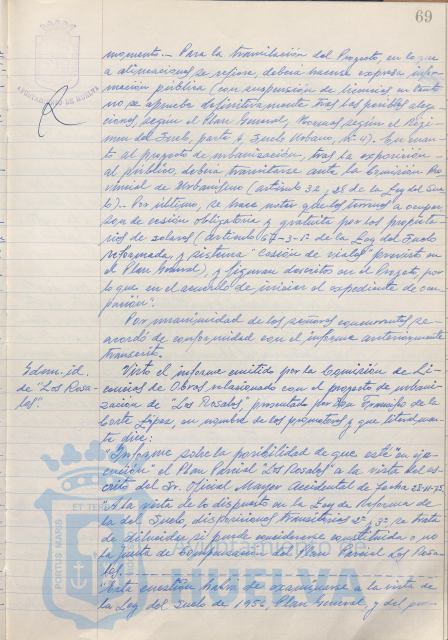 69
AYUNTAMIENTO DE HUELVA
momento... Para la tramitación del Proyecto, en lo que
a alineaciones se refiere, deberá hacerse expresa infor-
mación pública (con suspensión de licencias en tanto
no se apruebe definitivamente tras las posibles aleg-
aciones, según el Plan General, Normas según el Régi-
men del Suelo, parte 4, Suelo Urbano, nº 4). En cuan-
to al proyecto de urbanización, tras la exposición
al público, deberá tramitarse ante la Comisión Pro-
vincial de Urbanismo (artículo 32, de la Ley del Sue-
lo). Por último, se hace notar que los terrenos a ocupar
son de cesión obligatoria y gratuita por los propieta-
rios de solares (artículo 67-3-1º de la Ley del Suelo
reformada, y sistema "cesión de viales" previsto en
el Plan General), y figuran descritos en el Proyecto, por
lo que en el acuerdo de iniciar el expediente de
Por unanimidad de los señores concurrentes, se
acordó de conformidad con el informe anteriormente
transcrito.
Idem. id.
de "Los Rosa-
les".
Visto el informe emitido por la Comisión de Li-
cencias de Obras relacionado con el proyecto de urbani-
zación de "Los Rosales", presentado por Don Francisco de la
Corte López, en nombre de los promotores, y que literalmen-
te dice:
"Informe sobre la posibilidad de que esté "en eje-
cución" el Plan Parcial "Los Rosales" a la vista del es-
crito del Sr. Oficial Mayor Accidental de fecha
"A la vista de lo dispuesto en la Ley de Reforma de
la del Suelo, disposiciones transitorias se trata
de dilucidar si puede considerarse constituida o no
la Junta de Compensación del Plan Parcial Los Rosa-
les.
Esta cuestión habrá de examinarse a la vista de
la Ley del Suelo de 1956, Plan General, y del
PORTUS MARIS ET TERRAE
AYUNTAMIENTO DE
HUELVA